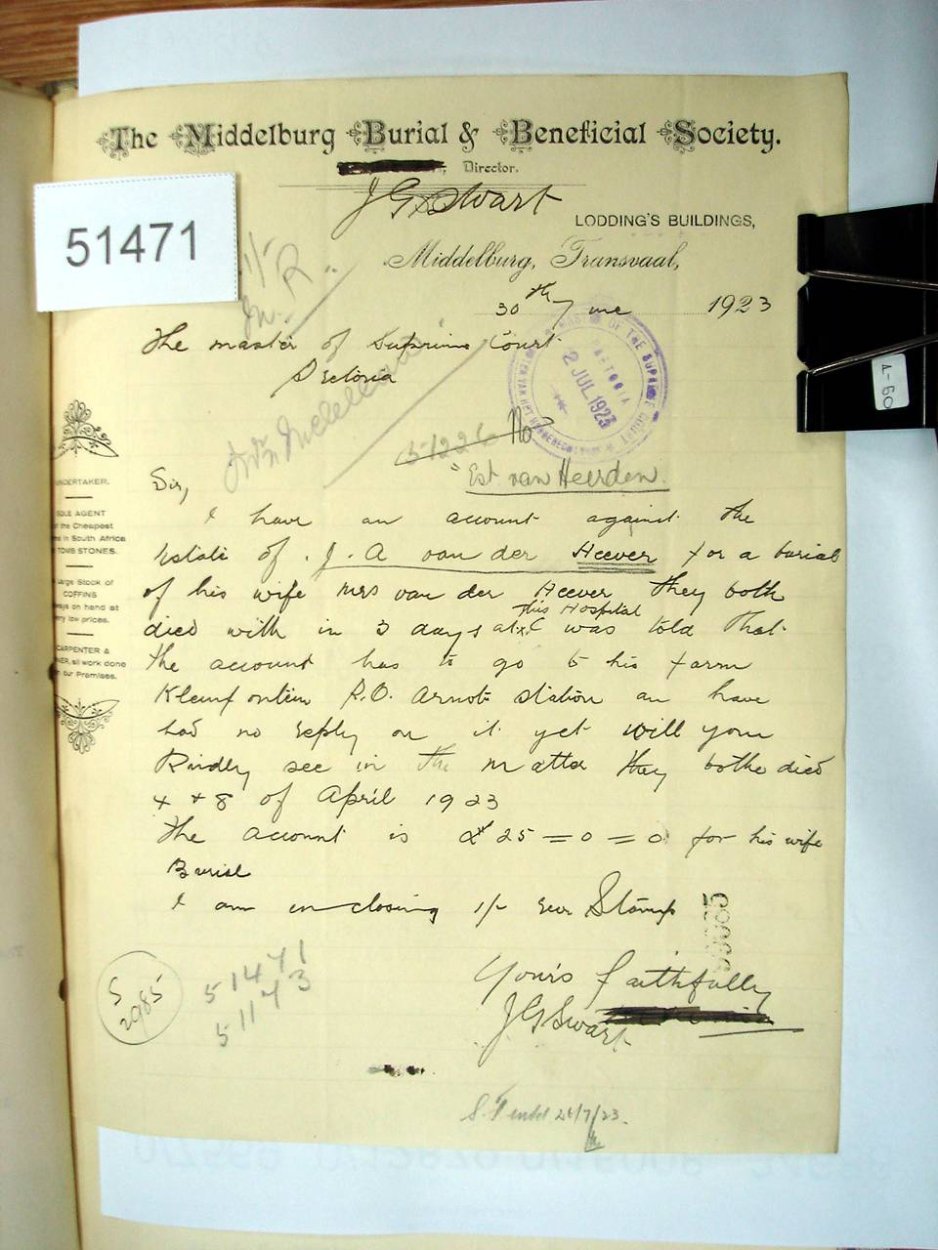 The Middelburg Burial & Beneficial Society.
Director.
J G Swart
LODDING'S BUILDINGS,
51471
Middelburg, Transvaal,
30th June 1923
The master of Suprime Court
Pretoria
2 JUL 1923
51226 No
Est van Heerden.
Sir,
I have an account against the
Estate of J. A van der Heever for a burial
of his wife Mrs van der Heever they both
died with in 3 days at this Hospital I was told that
the account has to go to his farm
Kleinfontein P.O. Arnot station an have
had no reply on it yet will you
Kindly see in the matter they bothe died
4 + 8 of April 1923
The account is £ 25 = 0 = 0 for his wife
Burial
I am inclosing 1/- Rev Stamp
Yours faithfully
J G Swart
UNDERTAKER.
SOLE AGENT
of the Cheapest
in South Africa
TOMB STONES.
Large Stock of
COFFINS
always on hand at
very low prices.
CARPENTER &
all work done
our Premises.
S
2985
51471
51173
24/7/23.
A-60